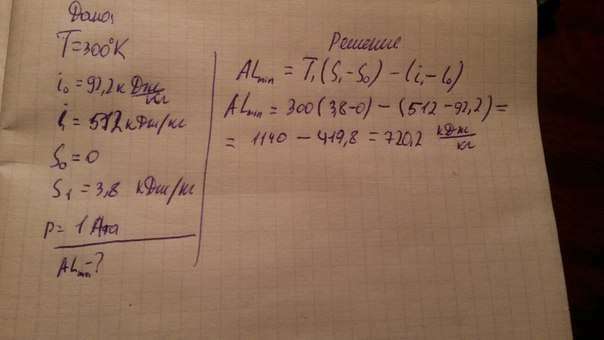 Дано:
T=300°K
i₀=92,2 кДж/кг
i₁=512 кДж/кг
S₀=0
S₁=3,8 кДж/кг
P=1 Ата
ALmin-?
Решение
ALmin = T₁(S₁-S₀) - (i₁-i₀)
ALmin = 300(3,8-0) - (512-92,2) =
= 1140 - 419,8 = 720,2 кДж/кг